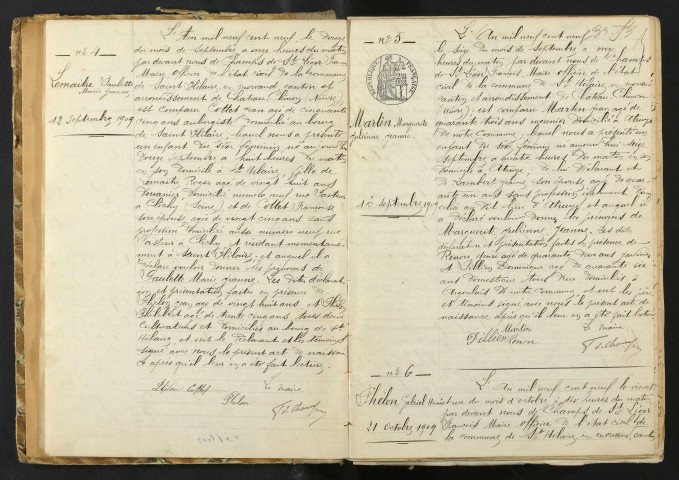 — n° 4 —
Lemaitre Paulette
Marie Jeanne
12 Septembre 1909
L'An mil neuf cent neuf le Douze
du mois de Septembre, à onze heures du matin
par devant nous de Champs de St Léger
Maire officier de l'état civil de la commune
de Saint Hilaire, en morvand, canton et
arrondissement de Château Chinon, Nièvre,
est comparu Cottet Jean agé de cinquante
cinq ans aubergiste domicilié au bourg
de Saint Hilaire, lequel nous a présenté
un enfant du sexe féminin né aujourd'hui
Douze Septembre à huit heures du matin
en son domicile à St Hilaire, fille de
Lemaitre Roger agé de vingt huit ans
Douanier domicilié numéro neuf rue Pasteur
à Clichy Seine, et de Cottet Françoise
son épouse agée de vingt cinq ans sans
profession domiciliée aussi numéro neuf rue
Pasteur à Clichy, et résidant momentané
ment à Saint Hilaire, et auquel il a
Déclaré vouloir donner les prénoms de
Paulette Marie Jeanne. Les dits déclarat
ion et présentation faites en présence de
Phelon Jean agé de vingt huit ans et
Philibert agé de trente cinq ans tous deux
Cultivateurs et domiciliés au bourg de St
Hilaire, et ont le Déclarant et les témoins
signé avec nous le présent acte de naissan
ce après qu'il leur en a été fait lecture.
Phelon Cottet Le maire
Phelon
— n° 5 —
Martin Marguerite
Jeanne
16 Septembre 1909
L'An mil neuf cent neuf
le Seize du mois de Septembre à onze
heures du matin, par devant nous de Champs
de St Léger François Maire officier de l'état
civil de la commune de St Hilaire en morvand
canton et arrondissement de Château Chinon
Nièvre, est comparu Martin Jean agé de
quarante trois ans meunier domicilié à
de notre Commune, lequel nous a présenté un
enfant du sexe féminin né aujourd'hui Seize
Septembre à quatre heures du matin en son
domicile à de lui Déclarant et
de Lambert Jeanne, son épouse agée de quar
ante un ans sans profession également domi
ciliée au dit lieu et auquel il
a Déclaré vouloir donner les prénoms de
Marguerite Jeanne. Les dits
déclaration et présentation faites en présence de
Renon agé de quarante deux ans
et Pillien Dominique agé de quarante six
ans domestique tous deux domiciliés à
de notre commune et ont le père
et témoins signé avec nous le présent acte de
naissance après qu'il leur en a été fait lecture
Martin Le maire
Pillien Renon
— n° 6 —
Phelon Gabriel
21 Octobre 1909
L'An mil neuf cent neuf le vingt
un du mois d'octobre à dix heures du matin
par devant nous de Champs de St Léger
François Maire officier de l'état civil de
la commune de St Hilaire, en morvand, canton